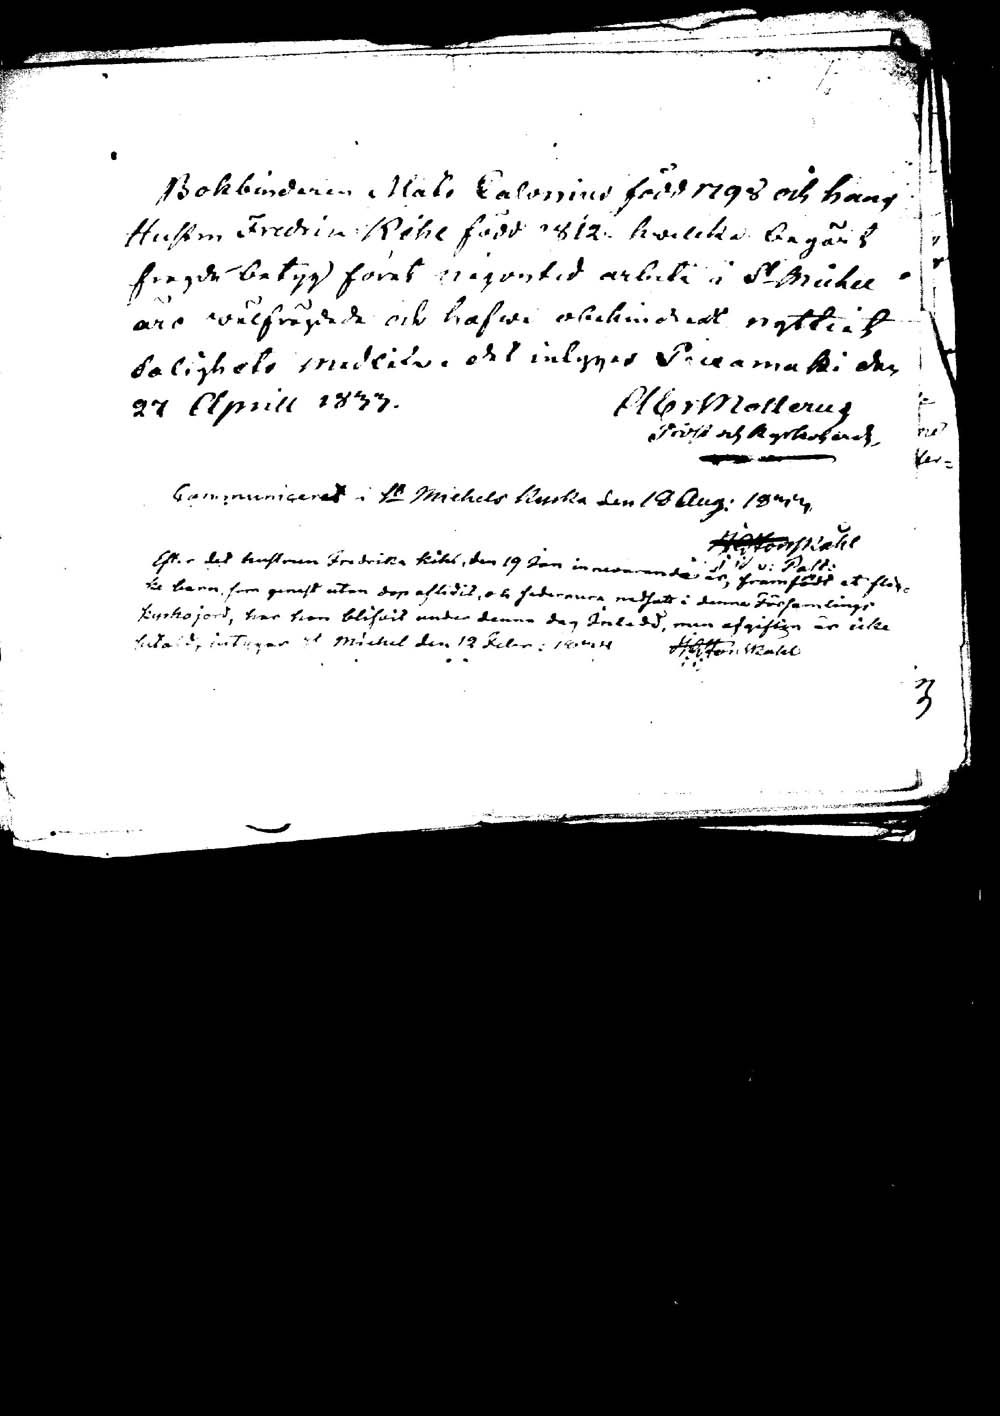 Bokbinderen Mats Calonius född 1798 och hans
Hustru Fredrika Kihl född 1812. hvilka begärt
fregde betyg föret någorstäd arbeta i St. Michel
äro välfrägdade och hafwa obehindradt nyttiat
Salighets medlen. det intygas den
27 Aprill 1833.
Prost och Kyrkoherde
Communicerat i St. Michels Kyrka den 18 Aug:
v: Past:
Efter det hustrun Fredrika Kihl, den 19 Jan innevarande år, framfödt et flic-
ke barn, som genast utan dop aflidit, och sedermera nedsatt i denna Församlings
Kyrkojord, har hon blifvit under denna dag Inledd, men afgiften är icke
betald, intygar St Michel den 12 Febr: 1844
3